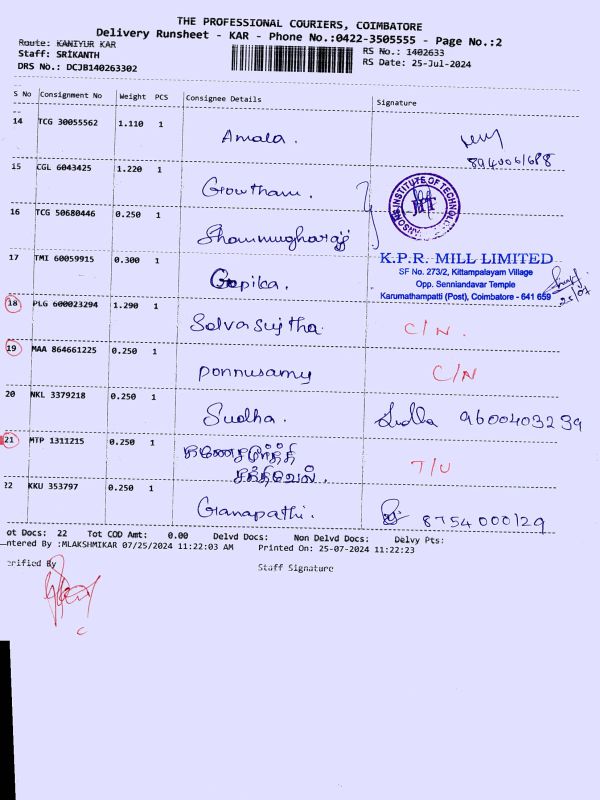 THE PROFESSIONAL COURIERS, COIMBATORE
Delivery Runsheet - KAR - Phone No.:0422-3505555 - Page No.:2
Route: KANIYUR KAR
Staff: SRIKANTH
DRS No.: DCJB140263302
RS No.: 1402633
RS Date: 25-Jul-2024
S No Consignment No Weight PCS Consignee Details Signature
14 TCG 30055562 1.110 1 Amala.
15 CGL 6043425 1.220 1 Gowtham.
16 TCG 50680446 0.250 1 Shanmugharajj
17 TMI 60059915 0.300 1 Gopika.
K.P.R. MILL LIMITED
SF No. 273/2, Kittampalayam Village
Opp. Senniandavar Temple
Karumathampatti (Post), Coimbatore - 641 659
25/07
18 PLG 600023294 1.290 1 Selvasujtha. C/N.
19 MAA 864661225 0.250 1 ponnusamy C/N
20 NKL 3379218 0.250 1 Sudha. Sudha 9600403239
21 MTP 1311215 0.250 1 சக்திவேல். T/U
22 KKU 353797 0.250 1 Ganapathi. 8754000129
ot Docs: 22 Tot COD Amt: 0.00 Delvd Docs: Non Delvd Docs: Delvy Pts:
ntered By :MLAKSHMIKAR 07/25/2024 11:22:03 AM Printed On: 25-07-2024 11:22:23
erified By Staff Signature